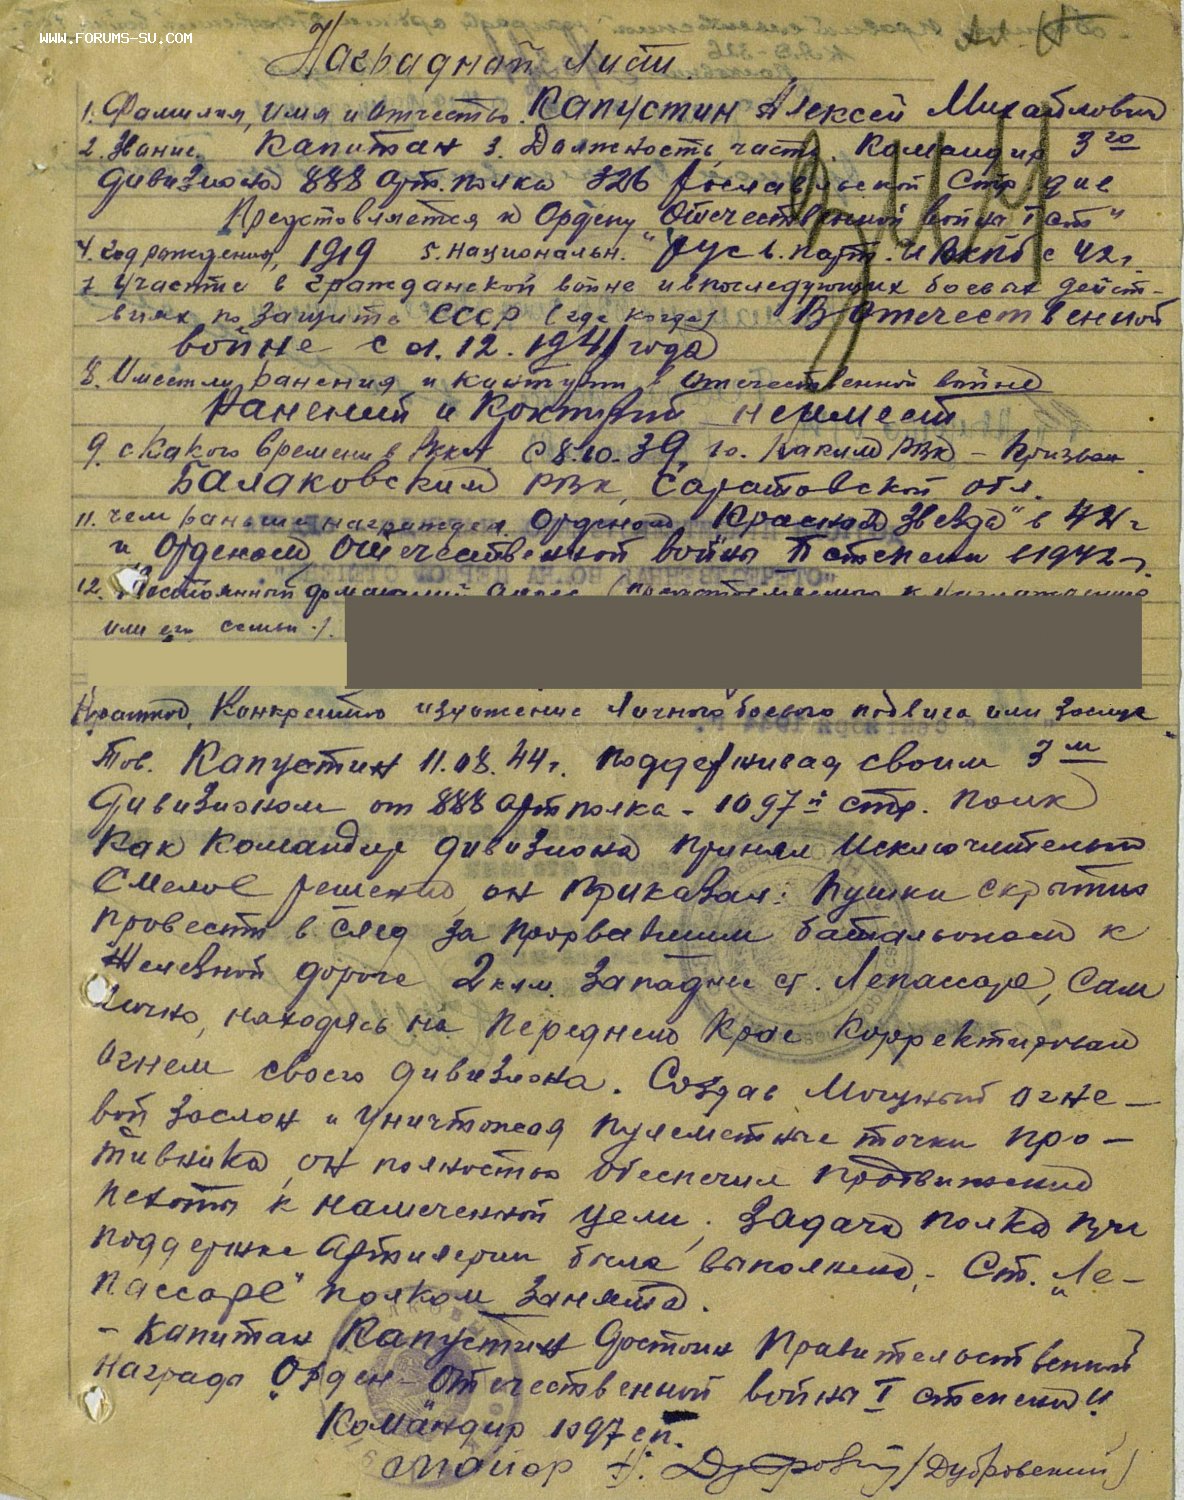 WWW.FORUMS-SU.COM
Наградной Лист
1. Фамилия, имя и отчество. Капустин Алексей Михайлович
2. Звание. Капитан 3. Должность, часть. Командир 3го
дивизиона 888 арт. полка 326 Рославльской Стр. див
Представляется к Ордену "Отечественной войны I ст"
4. год рождения, 1919 5. национальн. "рус 6. парт. ВКПб с 42г.
7. Участие в гражданской войне и в последующих боевых дейст-
виях по защите СССР (где когда) В Отечественной
войне с 1.12.1941 года
8. Имеет ли ранения и контузии в отечественной войне
Ранений и контузий не имеет
9. с какого времени в РККА с 8.10.39 10. каким РВК - Призван
Балаковским РВК, Саратовской обл.
11. чем раньше награжден Орденом "Красная Звезда" в 42г
и Орденом Отечественной войны II степени в 1942г.
12. Постоянный домашний адрес (представляемого к награждению
или его семьи).
Краткое, Конкретное изложение личного боевого подвига или заслуг
Тов. Капустин 11.08.44г. поддерживая своим 3м
дивизионом от 888 артполка - 1097й стр. полк
как командир дивизиона принял исключительно
смелое решение, он приказал: пушки скрытно
провести в след за прорвавшим батальоном к
железной дороге 2 клм. западнее ст. Лепассаре, Сам
лично, находясь на переднем крае корректировал
огнем своего дивизиона. Создав могучий огне-
вой заслон и уничтожая пулеметные точки про-
тивника, он полностью обеспечил продвижение
пехоты к намеченной цели, задача полка при
поддержке артилерии была выполнена. - Ст. "Ле-
пассаре" полком занята.
- Капитан Капустин достоин Правительственной
награды Орден - Отечественной войны I степени"
Командир 1097 сп.
майор /Дубровский/